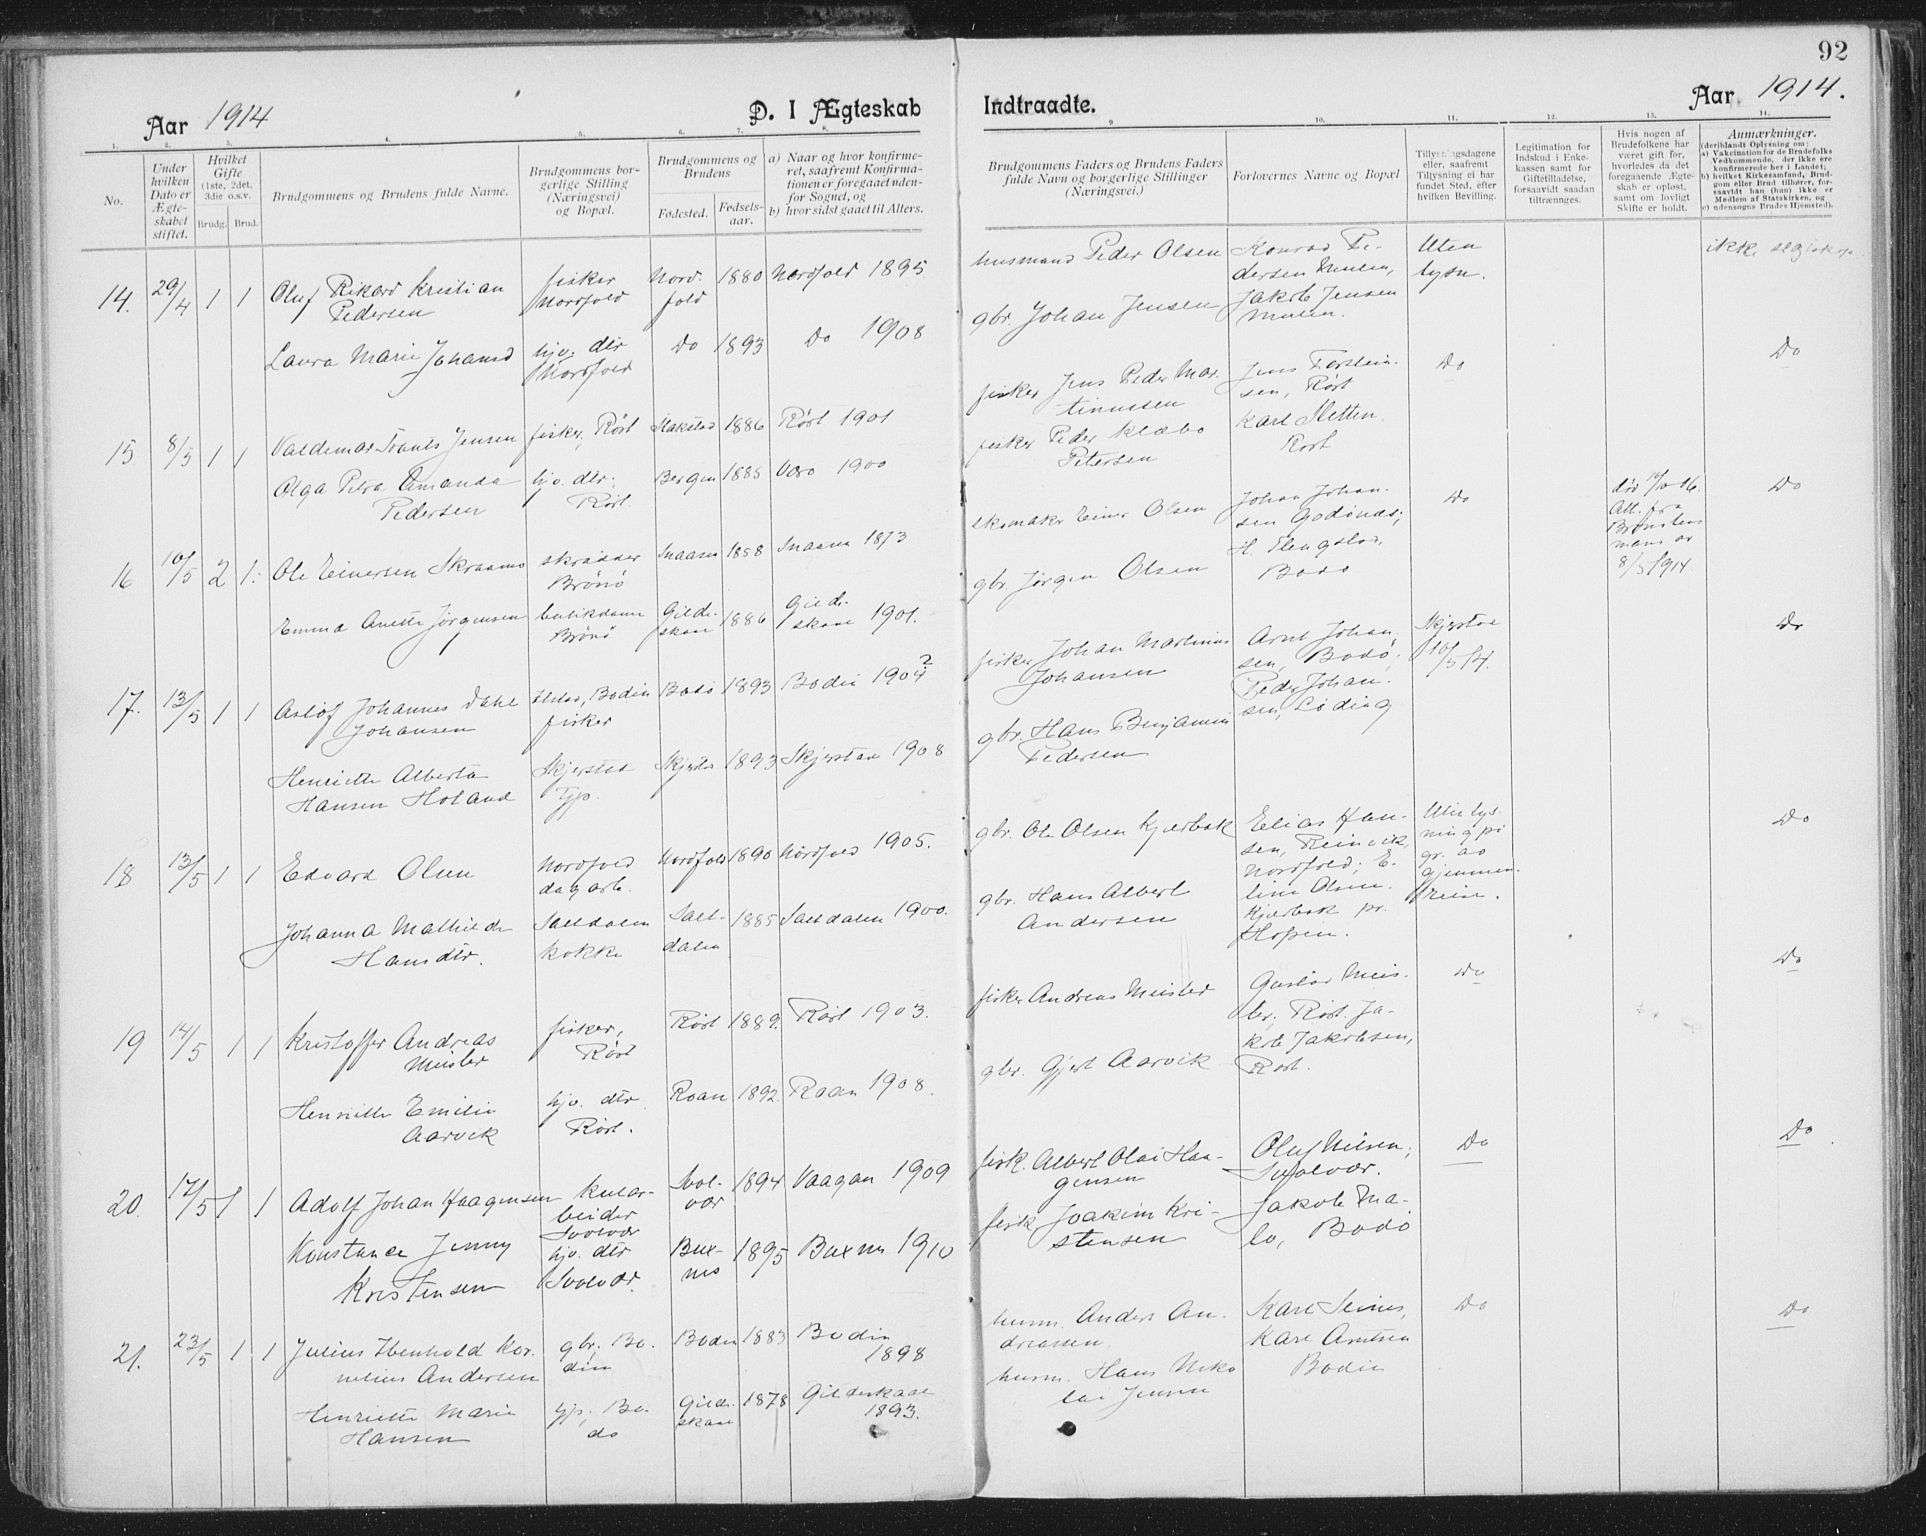 92
Aar 1914
D. I Ægteskab
Indtraadte.
Aar 1914.
1. 2. 3. 4. 5. 6. 7. 8. 9. 10. 11. 12. 13. 14.
No.
Under
hvilken
Dato er
Ægte-
skabet
stiftet.
Hvilket
Gifte
(1ste, 2det,
3die o.s.v.
Brudg. Brud.
Brudgommens og Brudens fulde Navne.
Brudgommens bor-
gerlige Stilling
(Næringsvei)
og Bopæl.
Brudgommens og
Brudens
Fødested.
Fødsels-
aar.
a) Naar og hvor konfirme-
ret, saafremt Konfirma-
tionen er foregaaet uden-
for Sognet, og
b) hvor sidst gaaet til Alters.
Brudgommens Faders og Brudens Faders
fulde Navn og borgerlige Stillinger
(Næringsvei.)
Forlovernes Navne og Bopæl
Tillysningsdagene
eller, saafremt
Tillysning ei har
fundet Sted, efter
hvilken Bevilling.
Legitimation for
Indskud i Enke-
kassen samt for
Giftetilladelse,
forsaavidt saadan
tiltrænges.
Hvis nogen af
Brudefolkene har
været gift før,
hvorledes da det
foregaaende Ægte-
skab er opløst,
samt om lovligt
Skifte er holdt.
Anmærkninger.
(deriblandt Oplysning om:
a) Vakcination for de Brudefolks
Vedkommende, der ikke ere
konfirmerede her i Landet;
b) hvilket Kirkesamfund, Brud-
gom eller Brud tilhører, for-
saavidt han (hun) ikke er
Medlem af Statskirken, og
c) udensogns Brudes Hjemsted).
14. 29/4 1 1
Oluf Rikard Kristian
Pedersen
fisker
Nordfold
Nord-
fold
1880 Nordfold 1895
husmand Peder Olsen
Konrad Pe-
dersen Mulen,
Uten
lysn.
ikke
Laura Marie Johansd
hjv. dtr
Nordfold
Do 1893 Do 1908
gbr. Johan Jensen
Jakob Jensen
Mulen.
15 8/5 1 1
Valdemar Frants Jensen
fisker, Röst
Hakstad 1886 Röst 1901
fisker Jens Peder Mar-
tinussen
Jens Torstein-
sen, Röst
Do
Do
Olga Petra Amanda
Pedersen
hjv. dtr.
Röst.
Bergen 1885 Værö 1900
fisker Peder Klæbo
Petersen
Karl Sletten.
Rost
16 10/5 2 1.
Ole Einersen Skraamo
skrædder
Brönö
Snaasen 1858 Snaasen 1873
skomaker Einer Olsen
Johan Johan-
sen Godönes;
Do
Att. fra
8/5 1914.
Do
Emma Anette Jörgensen
butikdame
Brönö
Gilde-
skaal
1886
Gilde-
skaal 1901.
gbr. Jörgen Olsen
Bodö
17. 13/5 1 1
Aslöf Johannes Dahl
Johansen
Bodin
fisker
Bodö 1893 Bodin 1904 2
fisker Johan Martinus
Johansen
Arnt Johan
sen, Bodö;
Skjerstad
10/5 14.
Do
Henriette Alberta
Hansen Holand
Skjerstad
Tjp.
Skjerstad 1893 Skjerstad 1908
gbr. Hans Benjamin
Pedersen
Peder Johan-
sen, Löding
18 13/5 1 1
Edvard Olsen
Nordfold
dagarb.
Nordfold 1890 Nordfold 1905.
gbr. Ole Olsen Kjelbak
Elias Han-
sen, Reinvik,
Nordfold; E-
line Olsen.
Kjelbak pr.
Hopen.
Uten lys-
ning på
gr. av
gjennem
reise.
Do
Johanna Mathilde
Hansdtr.
Saltdalen
kokke
Salt-
dalen
1885 Saltdalen 1900.
gbr. Hans Albert
Andersen
19 14/5 1 1
Kristoffer Andreas
Meister
fisker,
Röst
Röst 1889. Röst 1903.
fisker Andreas Meister
Gustav Meis-
ter, Röst. Ja-
kob Jakobsen,
Röst.
Do
Do
Henriette Emilie
Aarvik
hjv. dtr
Röst.
Roan 1892 Roan 1908.
gbr. Gjert Aarvik
20. 17/5 1 1
Adolf Johan Haagensen
kular-
beider
Svolvær
Svol-
vær
1894 Vaagan 1909
fisk. Albert Olai Haa-
gensen
Oluf Nilsen,
Svolvær.
Do
Do
Konstance Jenny
Kristensen
hjv. dtr
Svolvær.
Bux-
nes
1895 Buxnes 1910
fisk Joakim Kri-
stensen
Jakob Ma-
lo, Bodö
21. 23/5 1 1
Julius Ibenhold Kor-
nelius Andersen
gbr, Bo-
din
Bodin 1883 Bodin
1898
husm. Anders An-
dreassen.
Karl Seines,
Karl Arntsen
Bodin
Do
Do
Henriette Marie
Hansen
tjp, Bo-
dö
Gilde-
skaal
1878 Gildeskaal
1893.
husm. Hans Niko
lai Jensen